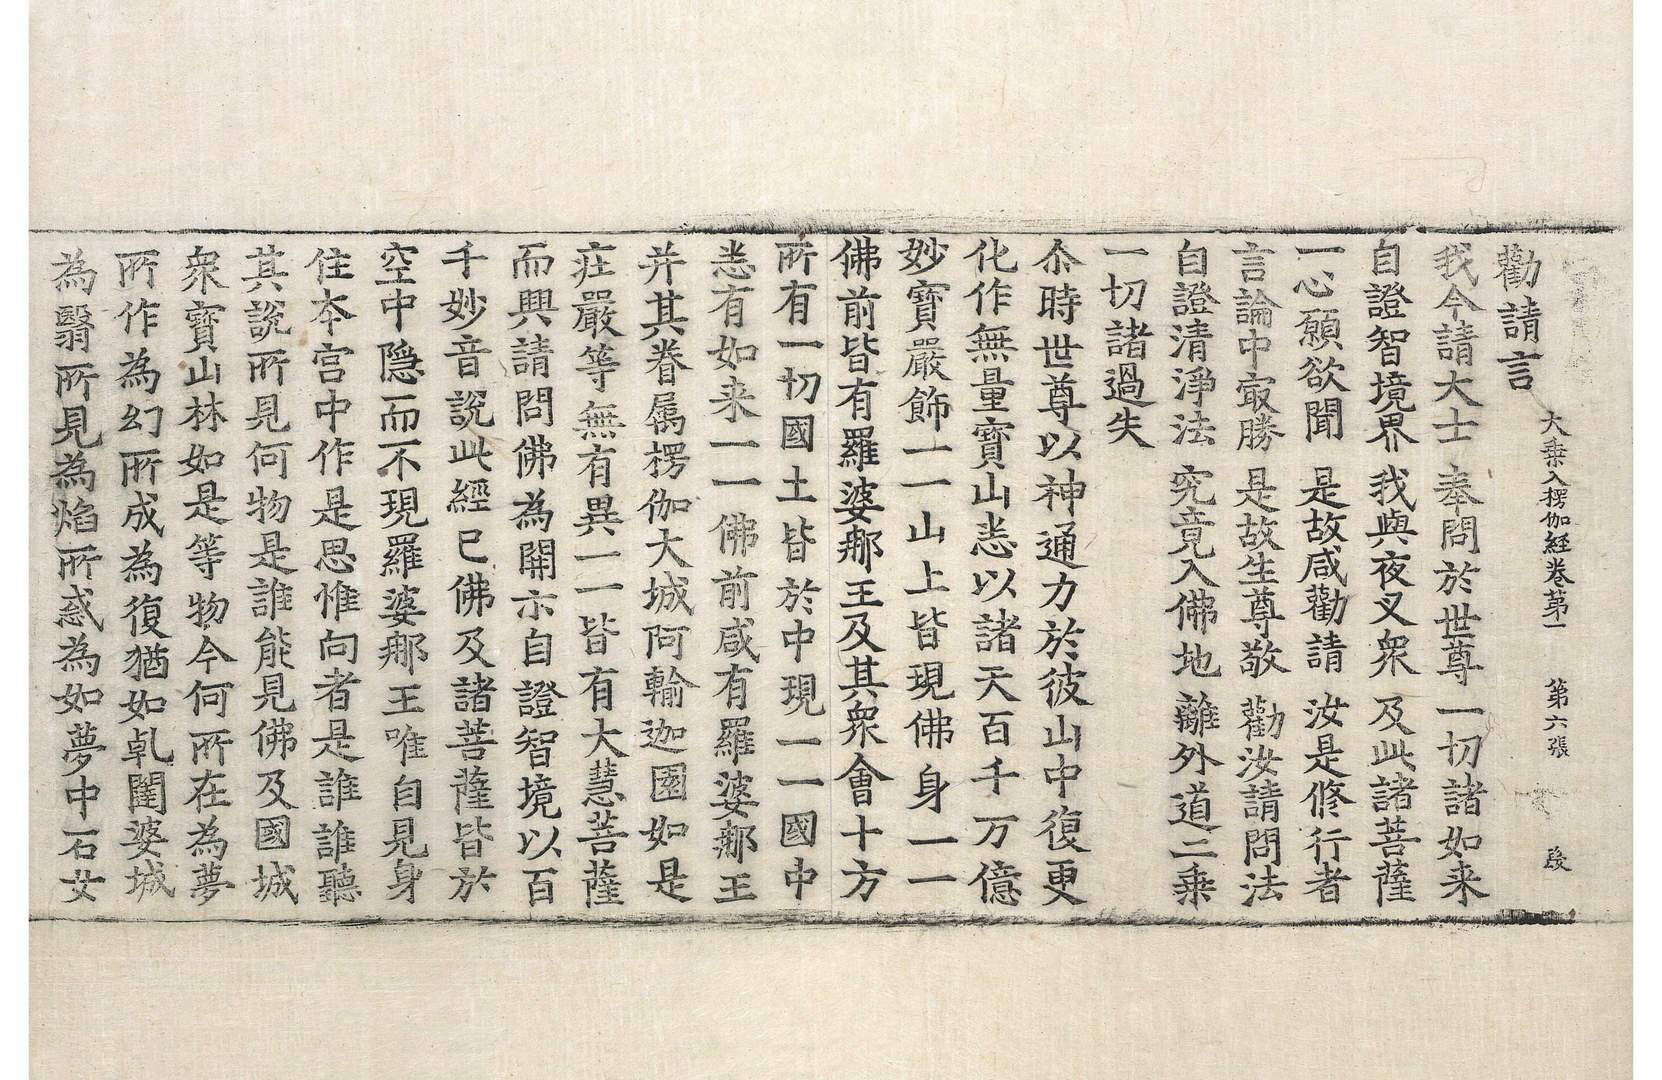 勸請言
大乗入楞伽経卷苐一 第六張 㱾
我今請大士 奉問於世尊 一切諸如来
自證智境界 我與夜叉衆 及此諸菩薩
一心願欲聞 是故咸勸請 汝是修行者
言論中㝡勝 是故生尊敬 勸汝請問法
自證清淨法 究竟入佛地 離外道二乗
一切諸過失
尒時世尊以神通力於彼山中復更
化作無量寳山悉以諸天百千万億
妙寳嚴飾一一山上皆現佛身一一
佛前皆有羅婆郍王及其衆會十方
所有一切國土皆於中現一一國中
悉有如来一一佛前咸有羅婆郍王
并其眷属楞伽大城阿輸迦園如是
疘嚴等無有異一一皆有大慧菩薩
而興請問佛為開示自證智境以百
千妙音說此經已佛及諸菩薩皆於
空中隠而不現羅婆郍王唯自見身
住本宫中作是思惟向者是誰誰聽
其說所見何物是誰能見佛及國城
衆寳山林如是等物今何所在為夢
所作為幻所成為復猶如乹闥婆城
為翳所見為焰所惑為如夢中石女